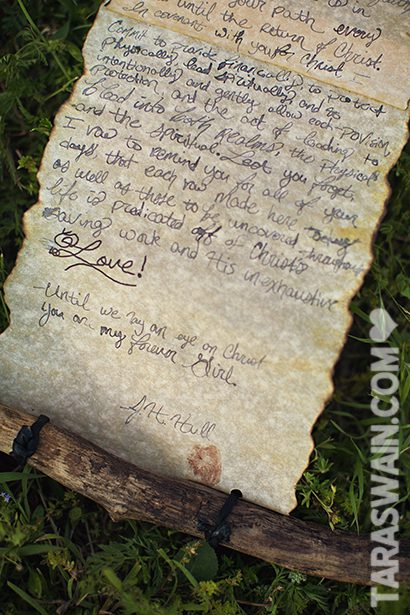 your path every
until the Return of Christ.
in covenant with you & Christ I
Commit to provide financially, to protect
physically, lead spiritually and to
intentionally and gently allow each, provision,
protection, and the act of leading to
bleed into both realms; the physical
and the spiritual. Lest you forget,
I vow to remind you for all of your
days, that each vow made here today
as well as those to be uncovered throughout
life is predicated off of Christ's
saving work and His inexhaustive
Love!
-Until we lay an eye on Christ
you are my forever-Girl.
J.H. Hull
TARASWAIN.COM